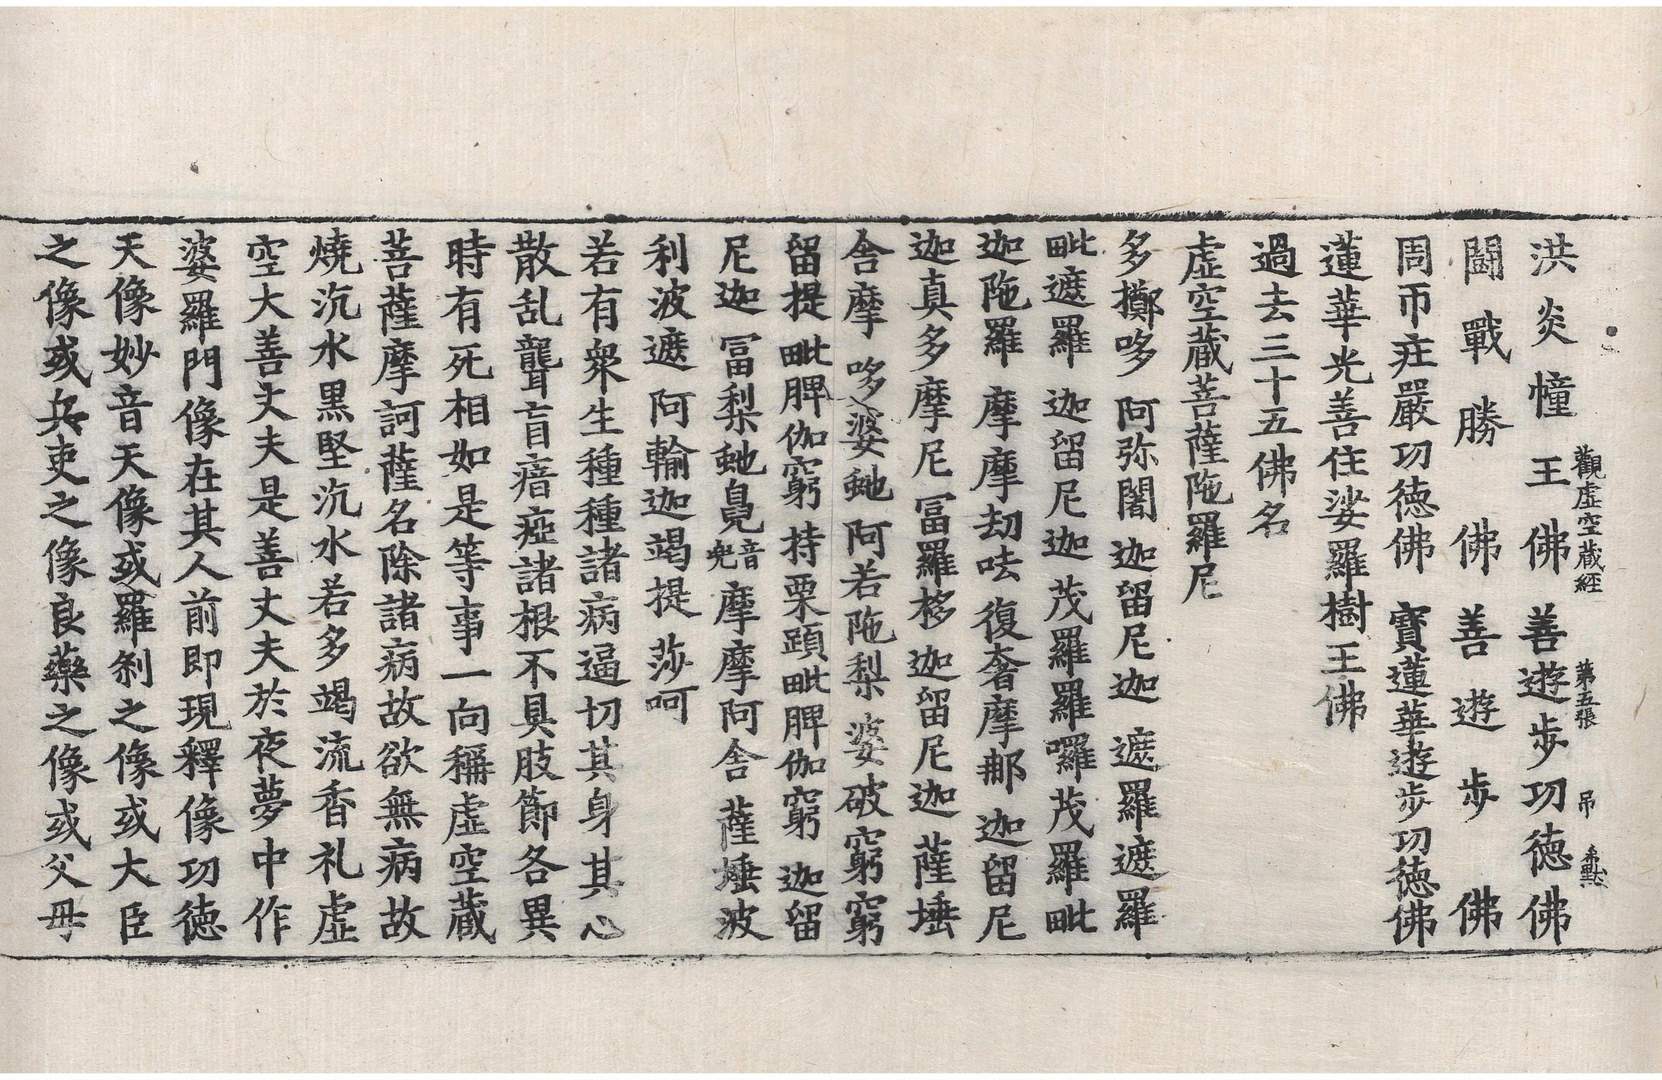 洪炎幢王佛 善遊步功德佛
觀虛空藏經 第五張 吊
鬪戰勝佛 善遊步佛
周帀莊嚴功德佛 寶蓮華遊步功德佛
蓮華光善住娑羅樹王佛
過去三十五佛名
虛空藏菩薩陁羅尼
多擲哆 阿弥闍 迦留尼迦 遮羅遮羅
毗遮羅 迦留尼迦 茂羅羅囉茂羅毗
迦陁羅 摩摩刼呿 復奢摩那 迦留尼
迦真多摩尼 冨羅移 迦留尼迦 薩埵
舎摩 哆婆虵 阿若陁梨 婆破窮窮
留提 毗脾伽窮 持栗蹞毗脾伽窮 迦留
尼迦 冨梨虵㲋音兜摩摩阿舎 薩埵波
利波遮 阿輸迦竭提 莎呵
若有衆生種種諸病逼切其身其心
散乱聾盲瘖瘂諸根不具肢節各異
時有死相如是等事一向稱虛空藏
菩薩摩訶薩名除諸病故欲無病故
燒沉水黒堅沉水若多竭流香礼虛
空大善丈夫是善丈夫於夜夢中作
婆羅門像在其人前即現釋像功德
天像妙音天像或羅刹之像或大臣
之像或兵吏之像良藥之像或父母